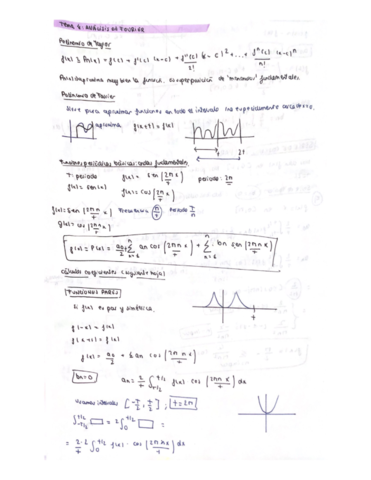 TEMA 4: ANÁLISIS DE FOURIER
Polinomio de Taylor
f(x) ≅ Pn(x) = f(c) + f'(c) (x-c) + f''(c)/2! (x-c)² + ... + f^n(c)/n! (x-c)^n
Pn(x) aproxima muy bien la función. Es superposición de "monomios" fundamentales.
Polinomio de Fourier
Sirve para aproximar funciones en todo el intervalo
aproxima f(x+T) = f(x)
T 2T
Funciones periódicas básicas: ondas fundamentales
T: periodo f(x) = sen (2π x/T) periodo: 2π
f(x) = sen(x) f(x) = cos (2π x/T)
f(x) = sen (2πn x/T) frecuencia n/T periodo T/n
g(x) = cos (2πn x/T)
f(x) = P(x) = a0/2 + Σ an cos (2πn x/T) + Σ bn sen (2πn x/T)
Cálculo coeficientes (siguiente hoja)
FUNCIONES PARES
Si f(x) es par y simétrica.
f(-x) = f(x)
f(x+T) = f(x)
f(x) = a0/2 + Σ an cos (2πn x/T)
bn = 0 an = 2/T ∫-T/2 T/2 f(x) cos (2πn x/T) dx
intervalos [-T/2, T/2] ; T = 2π
∫-T/2 T/2 □ = 2 ∫0 T/2 □ =
= 2·2/T ∫0 T/2 f(x) · cos (2πn x/T) dx